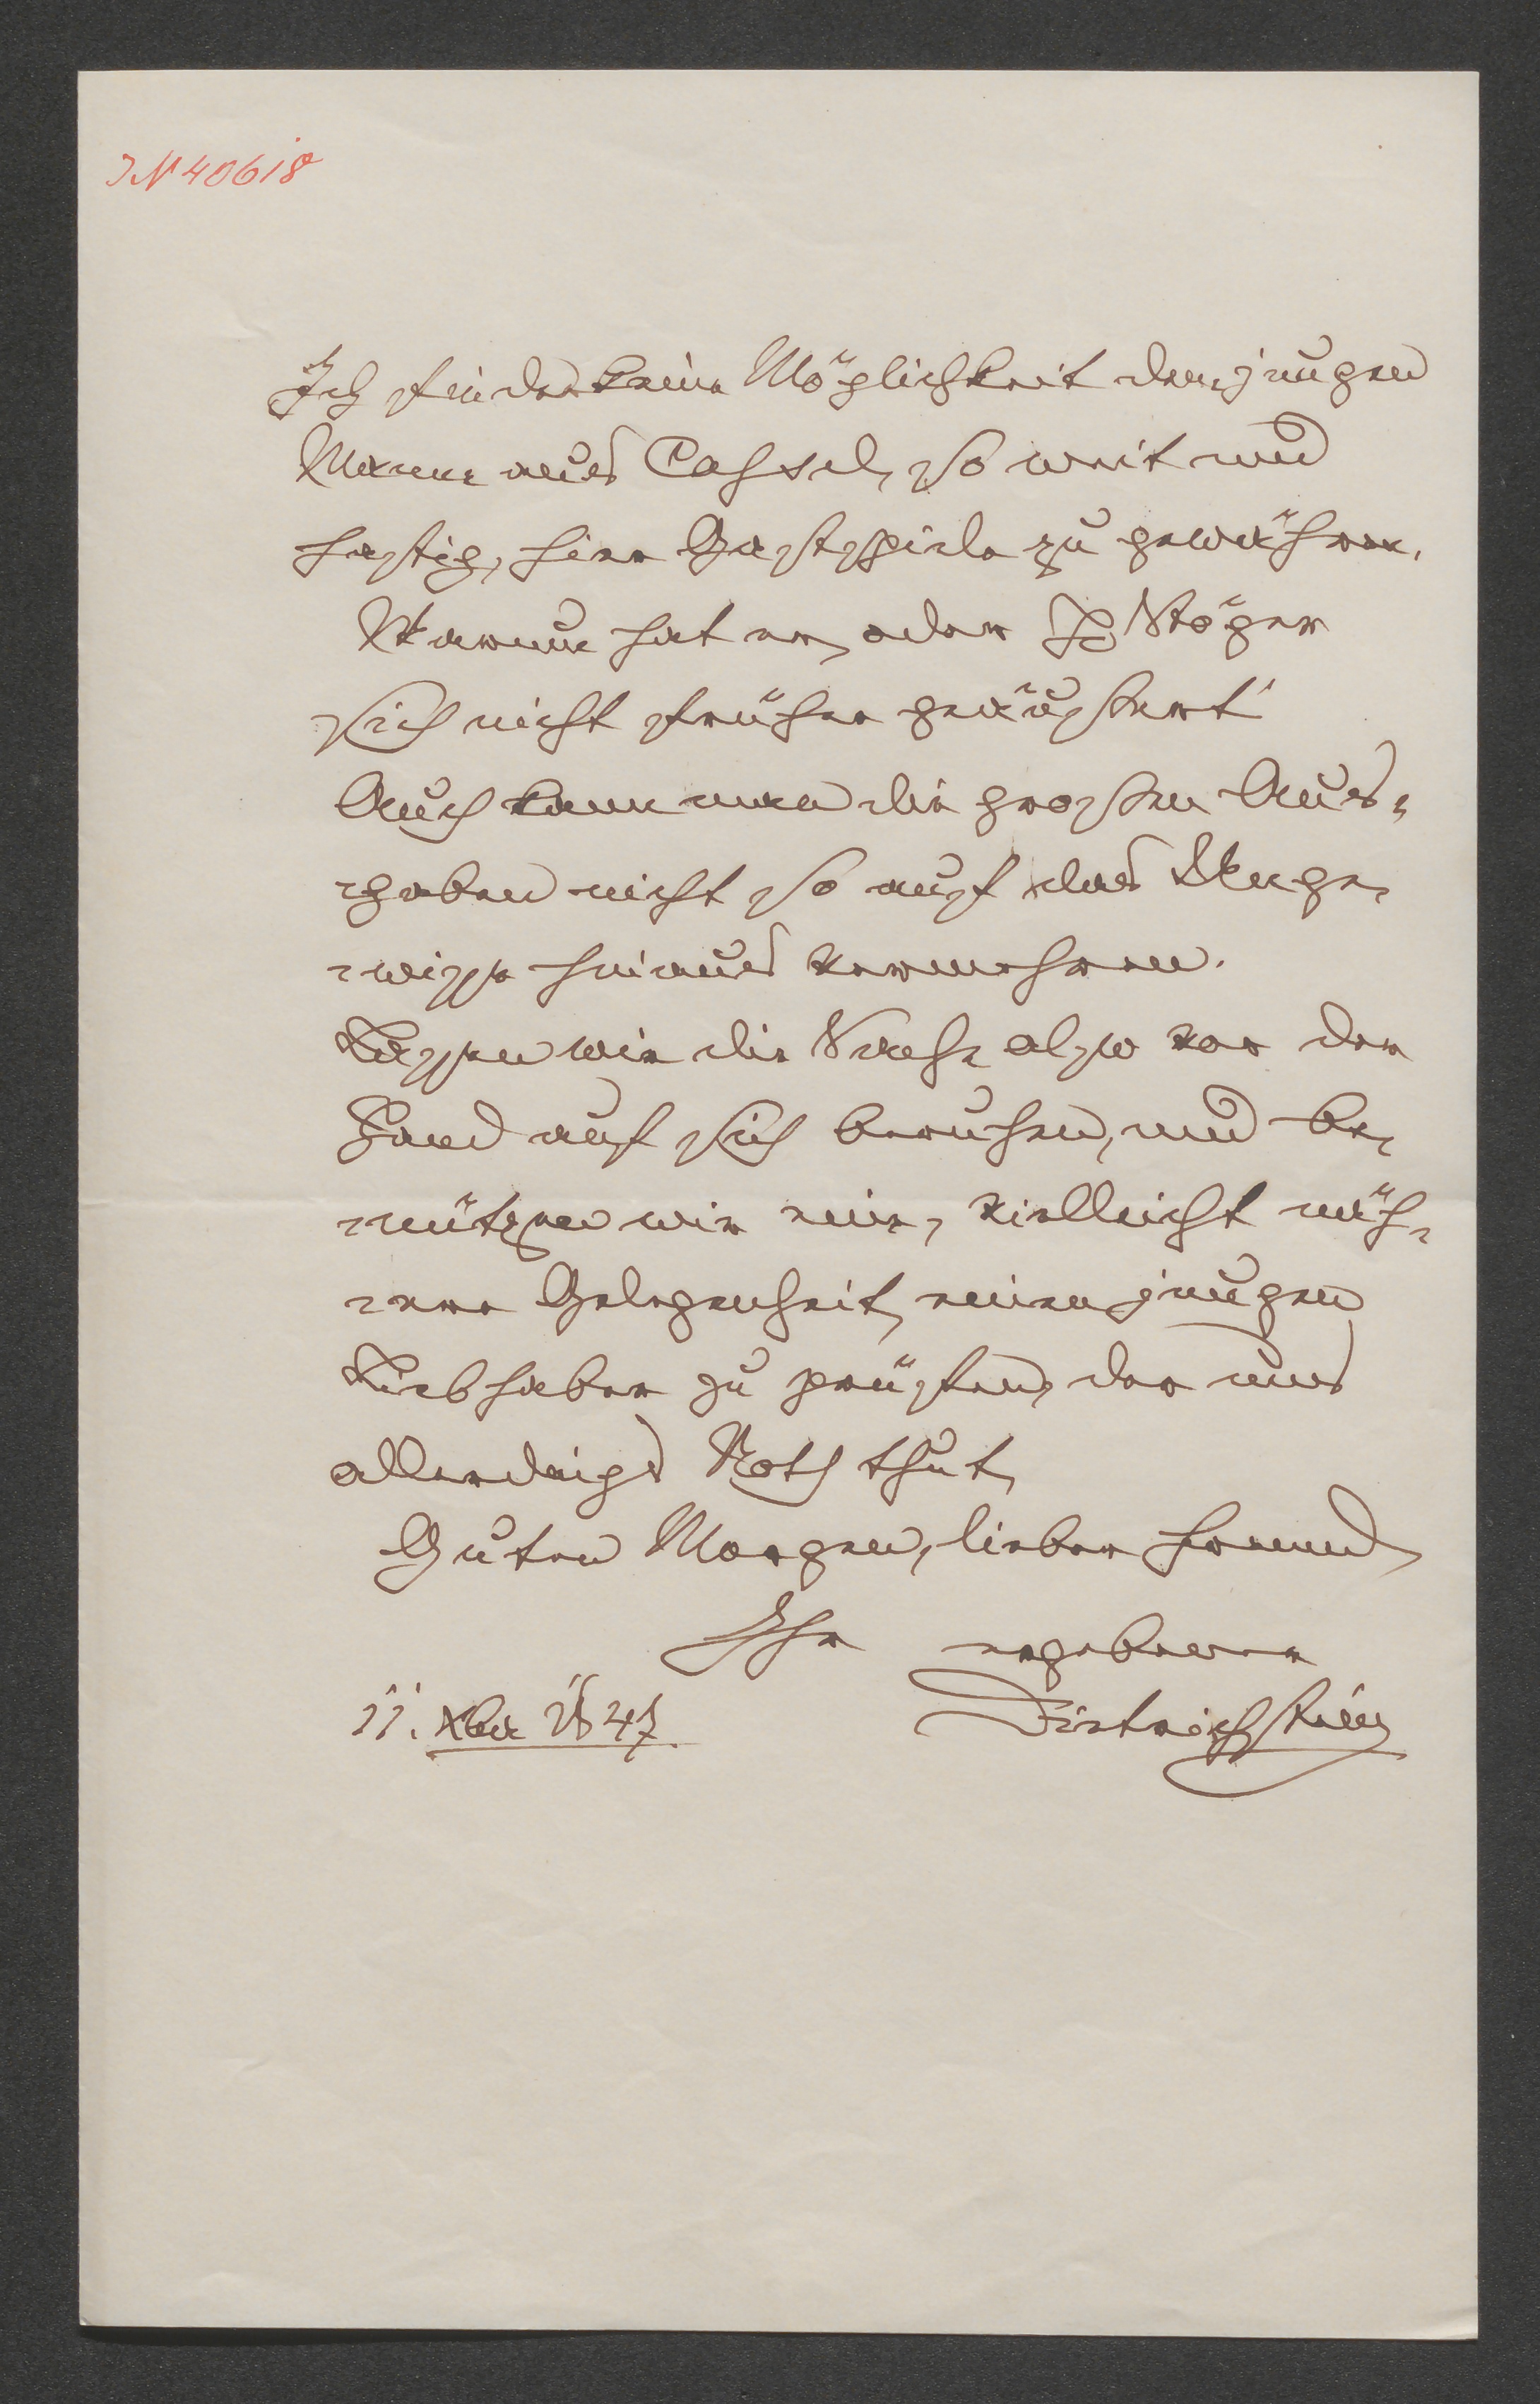 IN 40618
Ich finde keine Möglichkeit dem jungen
Manne aus Cassel, so weit und
hastig, hier Gastspiele zu gewähren.
Warum hat er, oder H Stöger
sich nicht früher geäußert?
Auch kann man die großen Aus-
gaben nicht so auf das Unge-
wisse hinaus vermehren.
Lassen wir die Sache also vor der
Hand auf sich beruhen, und be-
nützen wir eine, vielleicht näh-
ere Gelegenheit, einen jungen
Liebhaber zu prüfen, der uns
allerdings Noth thut,
Guten Morgen, lieber Freund,
Ihr ergebener
11. Xber 847. Dietrichstein